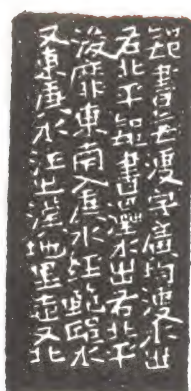 書無浭字廣韵浭水出
右北平 書灅水出右北平
浚靡東南入庚水經鮑邱水
又東庚水注之漢地理志又北